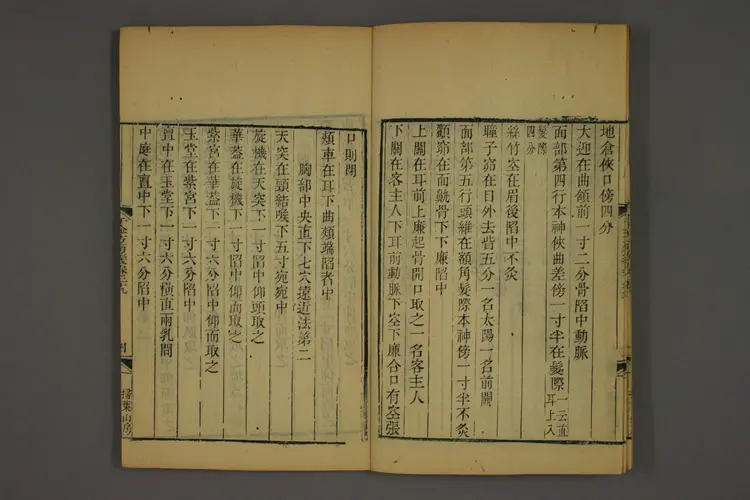 地倉俠口傍四分
大迎在曲頷前一寸二分骨陷中動脈
面部第四行本神俠曲差傍一寸半在髮際一云直耳上入
髮際四分
絲竹空在眉後陷中不灸
瞳子窌在目外去眥五分一名太陽一名前關
面部第五行頭維在額角髮際本神傍一寸半不灸
顴窌在面鼽骨下下廉陷中
上關在耳前上廉起骨開口取之一名客主人
下關在客主人下耳前動脈下空下廉合口有空張
口則閉
頰車在耳下曲頰端陷者中
胸部中央直下七穴遠近法第二
天突在頸結喉下五寸宛宛中
璇機在天突下一寸陷中仰頭取之
華蓋在璇機下一寸陷中仰而取之
紫宮在華蓋下一寸六分陷中仰而取之
玉堂在紫宮下一寸六分陷中
亶中在玉堂下一寸六分橫直兩乳間
中庭在亶中下一寸六分陷中
千金方衍義卷二十九
掃葉山房